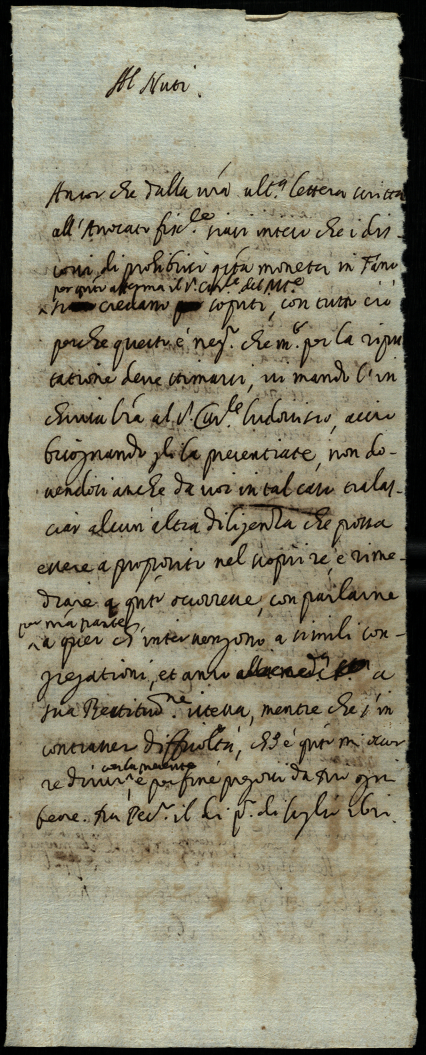 Al Nuti.
Ancor che dalla vrã ult.ª lettera scritta
all'Avocato fisc.le siasi inteso che i dis-
corsi di prohibirsi gẽsta moneta in Fano
per quãto afferma il S.r Cav.re del M.te
si credano sopiti, con tutto ciò
perche questo è neg.º che m.º per la ripu
tatione deve stimarsi, vi mando l'in
chiusa lrã al S.r Car.le Ludovisio, acciò
bisognando gli la presentiate, non do-
vendosi anche da voi in tal caso tralas-
ciar alcun'altra diligenza che possa
essere a proposito nel scoprire e rime-
diare a qũto occorresse, con parlarne
per mia parte
a quei ch'intervengono a simili con-
gregationi, et anco a
sua Beatitud.ne istessa, mentre che s'in
contrasser difficoltà, ch'è qũto mi occor
con la presente
re dirvi, e per fine pregovi da Dio ogni
bene. Da Pes.º il dì p.º di luglio 1621.